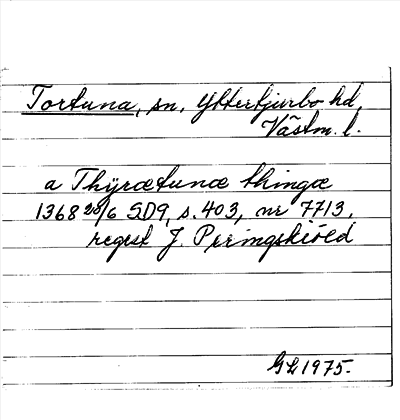 Tortuna, sn, Yttertjurbo hd,
Västm. l.
a Thÿrætunæ thingæ
1368 28/6 SD9, s. 403, nr 7713,
regest J. Peringskiöld
GL 1975.